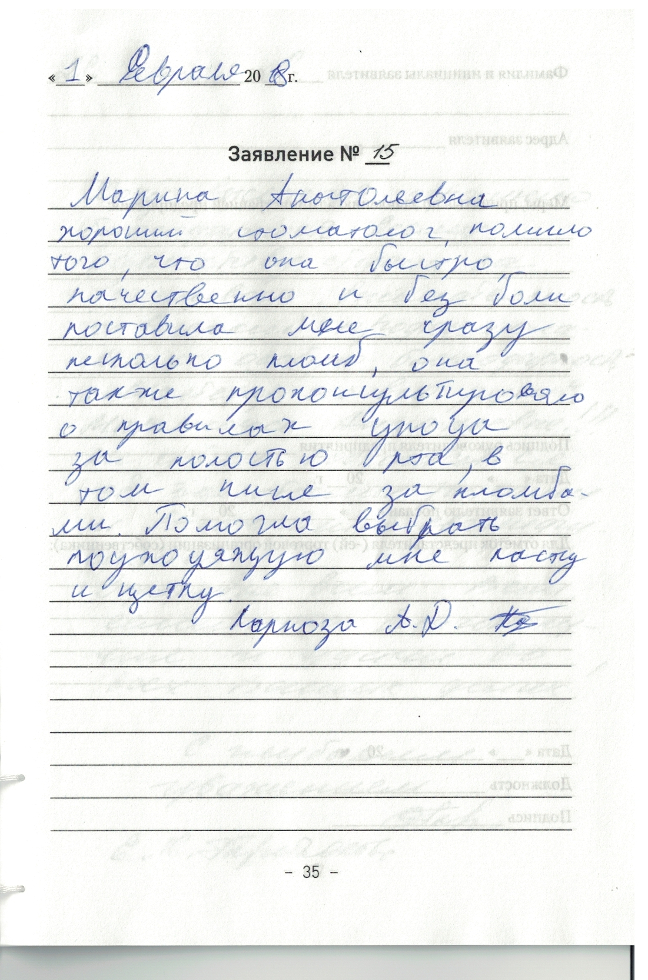 «1» Февраля 2018г.
Заявление № 15
Марина Анатольевна
хороший стоматолог, помимо
того, что она быстро,
качественно и без боли
поставила мне сразу
несколько пломб, она
также проконсультировала
о правилах ухода
за полостью рта, в
том числе за пломба-
ми. Помогла выбрать
подходящую мне пасту
и щетку.
А.Д.
- 35 -